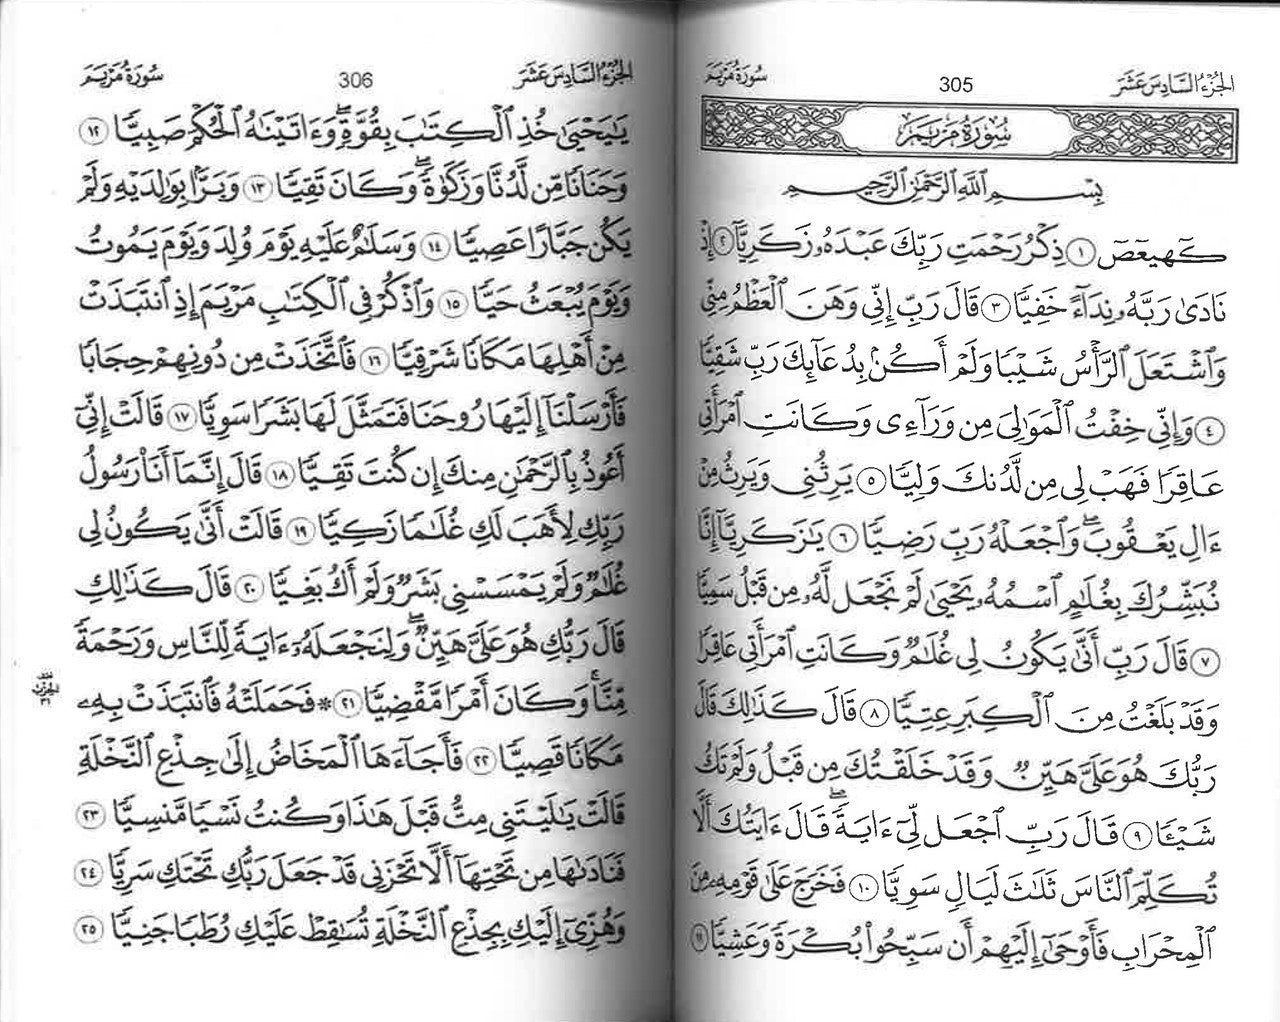 الجزء السادس عشر
305
سورة مريم
سُورَةُ مَرْيَمَ
بِسْمِ ٱللَّهِ ٱلرَّحْمَٰنِ ٱلرَّحِيمِ
كٓهيعٓصٓ ١ ذِكْرُ رَحْمَتِ رَبِّكَ عَبْدَهُۥ زَكَرِيَّآ ٢ إِذْ
نَادَىٰ رَبَّهُۥ نِدَآءً خَفِيًّا ٣ قَالَ رَبِّ إِنِّى وَهَنَ ٱلْعَظْمُ مِنِّى
وَٱشْتَعَلَ ٱلرَّأْسُ شَيْبًا وَلَمْ أَكُنۢ بِدُعَآئِكَ رَبِّ شَقِيًّا
٤ وَإِنِّى خِفْتُ ٱلْمَوَٰلِىَ مِن وَرَآءِى وَكَانَتِ ٱمْرَأَتِى
عَاقِرًا فَهَبْ لِى مِن لَّدُنكَ وَلِيًّا ٥ يَرِثُنِى وَيَرِثُ مِنْ
ءَالِ يَعْقُوبَ ۖ وَٱجْعَلْهُ رَبِّ رَضِيًّا ٦ يَٰزَكَرِيَّآ إِنَّا
نُبَشِّرُكَ بِغُلَٰمٍ ٱسْمُهُۥ يَحْيَىٰ لَمْ نَجْعَل لَّهُۥ مِن قَبْلُ سَمِيًّا
٧ قَالَ رَبِّ أَنَّىٰ يَكُونُ لِى غُلَٰمٌ وَكَانَتِ ٱمْرَأَتِى عَاقِرًا
وَقَدْ بَلَغْتُ مِنَ ٱلْكِبَرِ عِتِيًّا ٨ قَالَ كَذَٰلِكَ قَالَ
رَبُّكَ هُوَ عَلَىَّ هَيِّنٌ وَقَدْ خَلَقْتُكَ مِن قَبْلُ وَلَمْ تَكُ
شَيْـًٔا ٩ قَالَ رَبِّ ٱجْعَل لِّىٓ ءَايَةً ۚ قَالَ ءَايَتُكَ أَلَّا
تُكَلِّمَ ٱلنَّاسَ ثَلَٰثَ لَيَالٍ سَوِيًّا ١٠ فَخَرَجَ عَلَىٰ قَوْمِهِۦ مِنَ
ٱلْمِحْرَابِ فَأَوْحَىٰٓ إِلَيْهِمْ أَن سَبِّحُوا۟ بُكْرَةً وَعَشِيًّا ١١
الجزء السادس عشر
306
سورة مريم
يَٰيَحْيَىٰ خُذِ ٱلْكِتَٰبَ بِقُوَّةٍ ۖ وَءَاتَيْنَٰهُ ٱلْحُكْمَ صَبِيًّا ١٢
وَحَنَانًا مِّن لَّدُنَّا وَزَكَوٰةً ۖ وَكَانَ تَقِيًّا ١٣ وَبَرًّۢا بِوَٰلِدَيْهِ وَلَمْ
يَكُن جَبَّارًا عَصِيًّا ١٤ وَسَلَٰمٌ عَلَيْهِ يَوْمَ وُلِدَ وَيَوْمَ يَمُوتُ
وَيَوْمَ يُبْعَثُ حَيًّا ١٥ وَٱذْكُرْ فِى ٱلْكِتَٰبِ مَرْيَمَ إِذِ ٱنتَبَذَتْ
مِنْ أَهْلِهَا مَكَانًا شَرْقِيًّا ١٦ فَٱتَّخَذَتْ مِن دُونِهِمْ حِجَابًا
فَأَرْسَلْنَآ إِلَيْهَا رُوحَنَا فَتَمَثَّلَ لَهَا بَشَرًا سَوِيًّا ١٧ قَالَتْ إِنِّىٓ
أَعُوذُ بِٱلرَّحْمَٰنِ مِنكَ إِن كُنتَ تَقِيًّا ١٨ قَالَ إِنَّمَآ أَنَا۠ رَسُولُ
رَبِّكِ لِأَهَبَ لَكِ غُلَٰمًا زَكِيًّا ١٩ قَالَتْ أَنَّىٰ يَكُونُ لِى
غُلَٰمٌ وَلَمْ يَمْسَسْنِى بَشَرٌ وَلَمْ أَكُ بَغِيًّا ٢٠ قَالَ كَذَٰلِكِ
قَالَ رَبُّكِ هُوَ عَلَىَّ هَيِّنٌ ۖ وَلِنَجْعَلَهُۥٓ ءَايَةً لِّلنَّاسِ وَرَحْمَةً
مِّنَّا ۚ وَكَانَ أَمْرًا مَّقْضِيًّا ٢١ * فَحَمَلَتْهُ فَٱنتَبَذَتْ بِهِۦ
مَكَانًا قَصِيًّا ٢٢ فَأَجَآءَهَا ٱلْمَخَاضُ إِلَىٰ جِذْعِ ٱلنَّخْلَةِ
قَالَتْ يَٰلَيْتَنِى مِتُّ قَبْلَ هَٰذَا وَكُنتُ نَسْيًا مَّنسِيًّا ٢٣
فَنَادَىٰهَا مِن تَحْتِهَآ أَلَّا تَحْزَنِى قَدْ جَعَلَ رَبُّكِ تَحْتَكِ سَرِيًّا ٢٤
وَهُزِّىٓ إِلَيْكِ بِجِذْعِ ٱلنَّخْلَةِ تُسَٰقِطْ عَلَيْكِ رُطَبًا جَنِيًّا ٢٥
الحزب
٣١